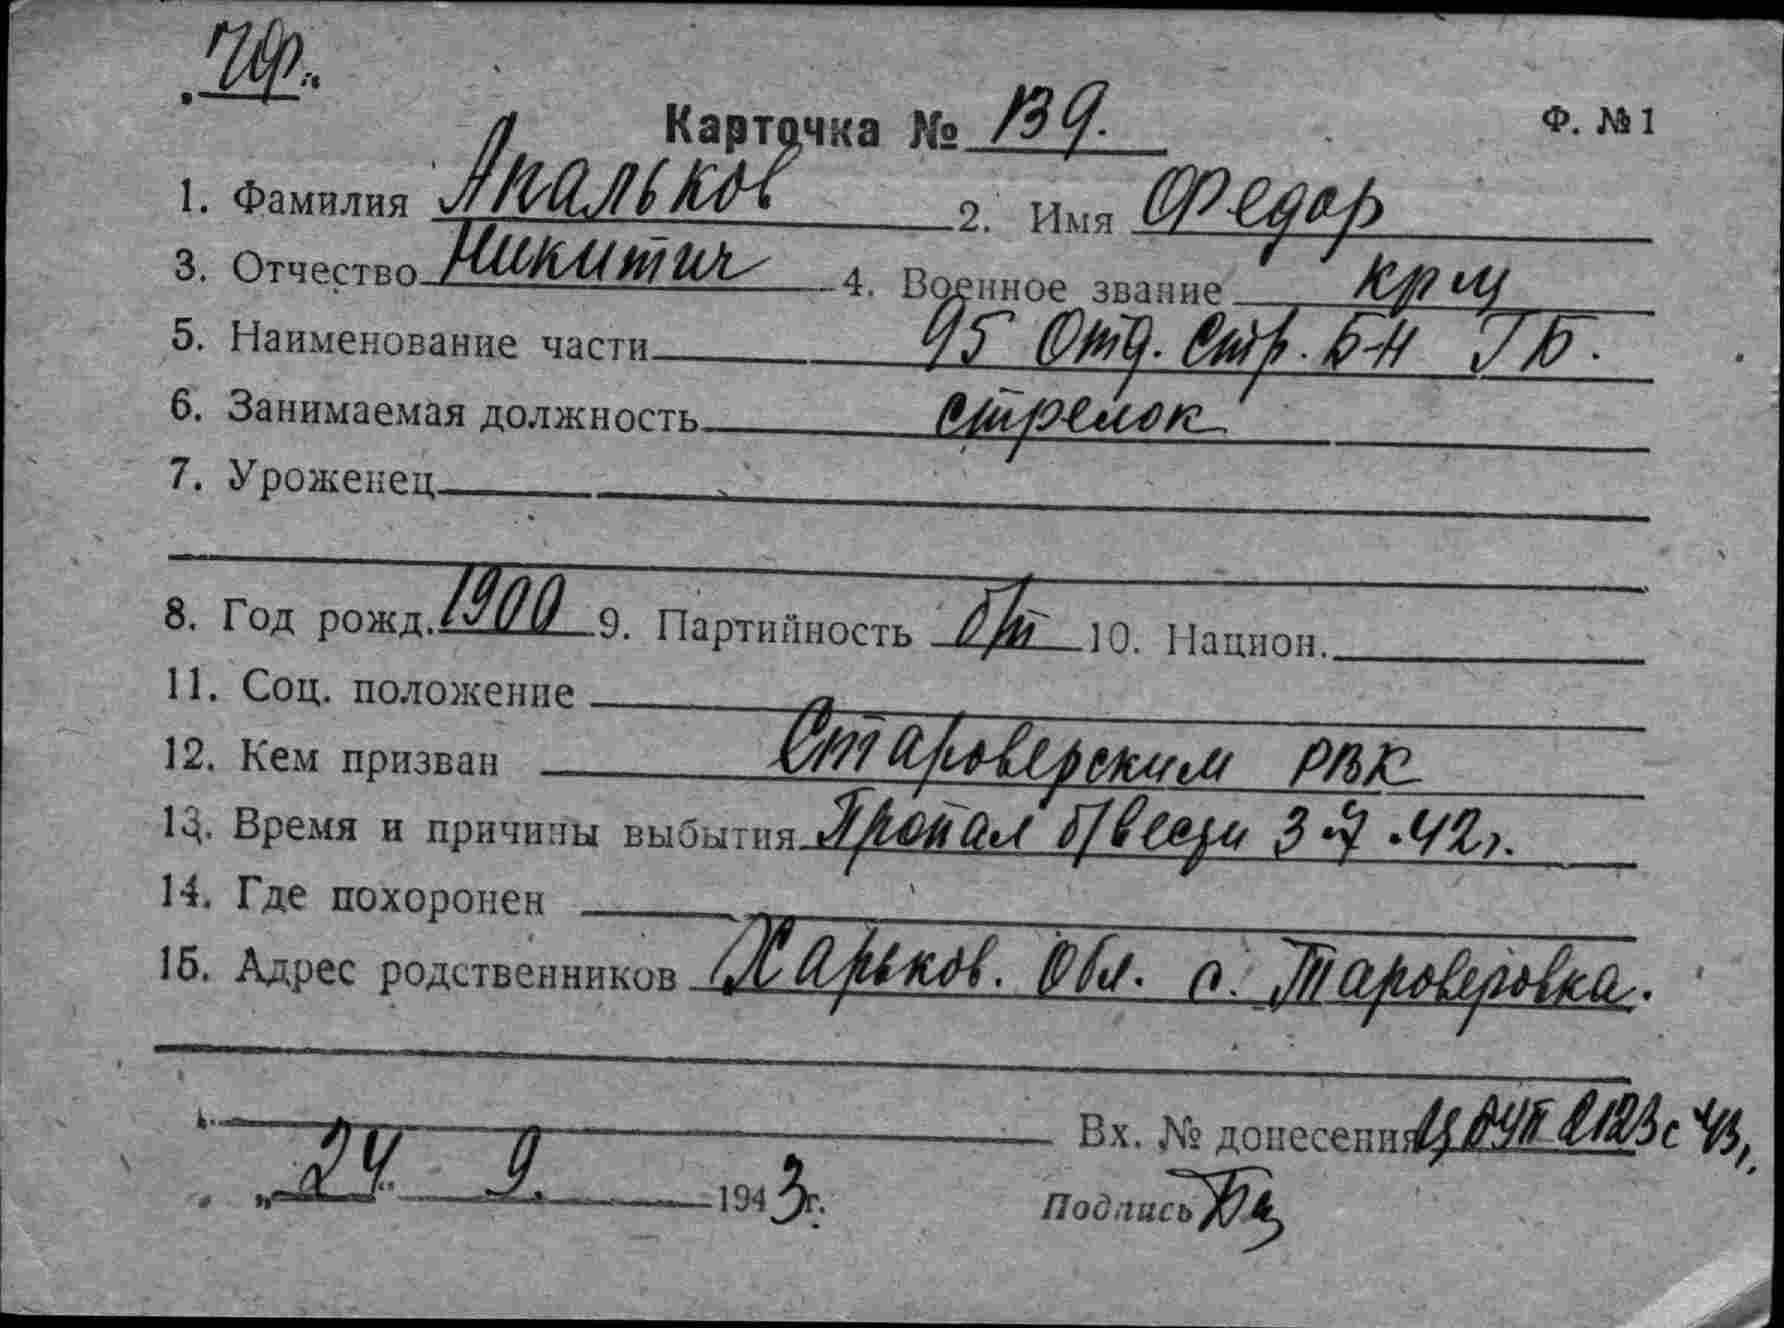 Карточка № 139. Ф. № 1
1. Фамилия Апальков 2. Имя Федор
3. Отчество Никитич 4. Военное звание крц
5. Наименование части 95 Отд. Стр. Б-н ГБ.
6. Занимаемая должность стрелок
7. Уроженец
8. Год рожд. 1900 9. Партийность б/п 10. Национ.
11. Соц. положение
12. Кем призван Староверским РВК
13. Время и причины выбытия Пропал б/вести 3.7.42г.
14. Где похоронен
15. Адрес родственников Харьков. Обл. с. Тароверовка.
Вх. № донесения
„24“ 9. 1943г. Подпись